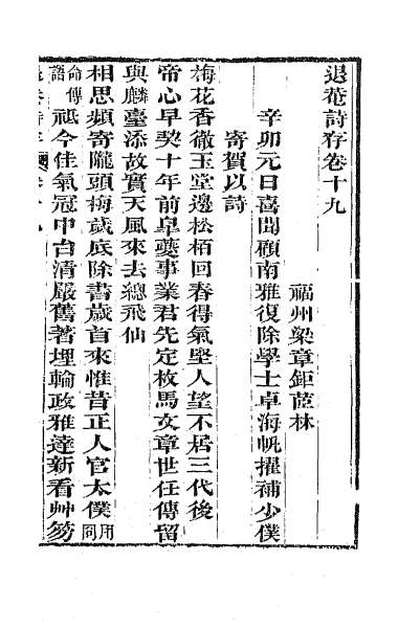 退菴詩存卷十九
福州梁章鉅茝林
辛卯元日喜聞顧南雅復除學士卓海帆擢補少僕
寄賀以詩
梅花香徹玉堂邊松栢回春得氣堅人望不居三代後
帝心早契十年前臯夔事業君先定枚馬文章世任傳留
與麟臺添故實天風來去總飛仙
相思頻寄隴頭梅歲底除書歲首來惟昔正人官太僕用冏
命傳語祗今佳氣冠中台清嚴舊著埋輪政雅達新看艸笏